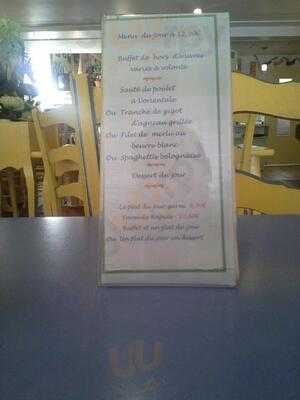 Menu du jour à 12,50€
Buffet de hors d'œuvres
variés à volonté
Sauté de poulet
à l'orientale
Ou Tranche de gigot
d'agneau grillée
Ou Filet de merlu au
beurre blanc
Ou Spaghettis bolognaise
Dessert du jour
Le plat du jour garni 8,50€
Formule Rapide : 10,50€
Buffet et un plat du jour
Ou Un plat du jour un dessert